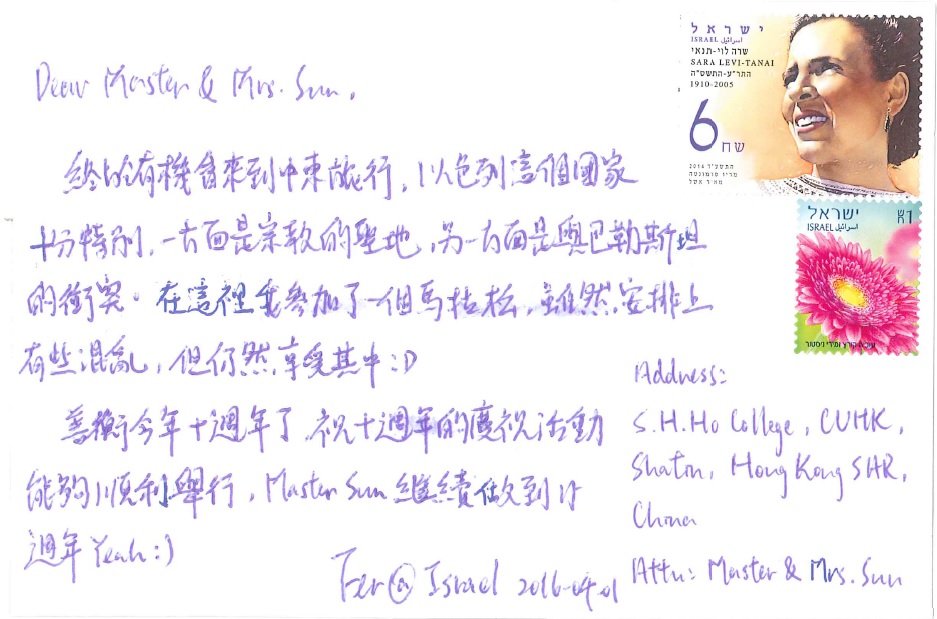 Dear Master & Mrs. Sun,
終於有機會來到中東旅行，以色列這個國家
十分特別，一方面是宗教的聖地，另一方面是與巴勒斯坦
的衝突。在這裡我參加了一個馬拉松，雖然安排上
有些混亂，但仍然享受其中:D
善衡今年十週年了，祝十週年的慶祝活動
能夠順利舉行，Master Sun 繼續做到
週年 Yeah:)
@ Israel 2016-04-01
ישראל
ISRAEL اسرائيل
שרה לוי-תנאי
SARA LEVI-TANAI
התר"ע-התשס"ה
1910-2005
6 שח
התשע"ד 2014
ישראל
ISRAEL اسرائيل
1 שח
Address:
S.H.Ho College, CUHK,
Shatin, Hong Kong SAR,
China
Attn: Master & Mrs. Sun